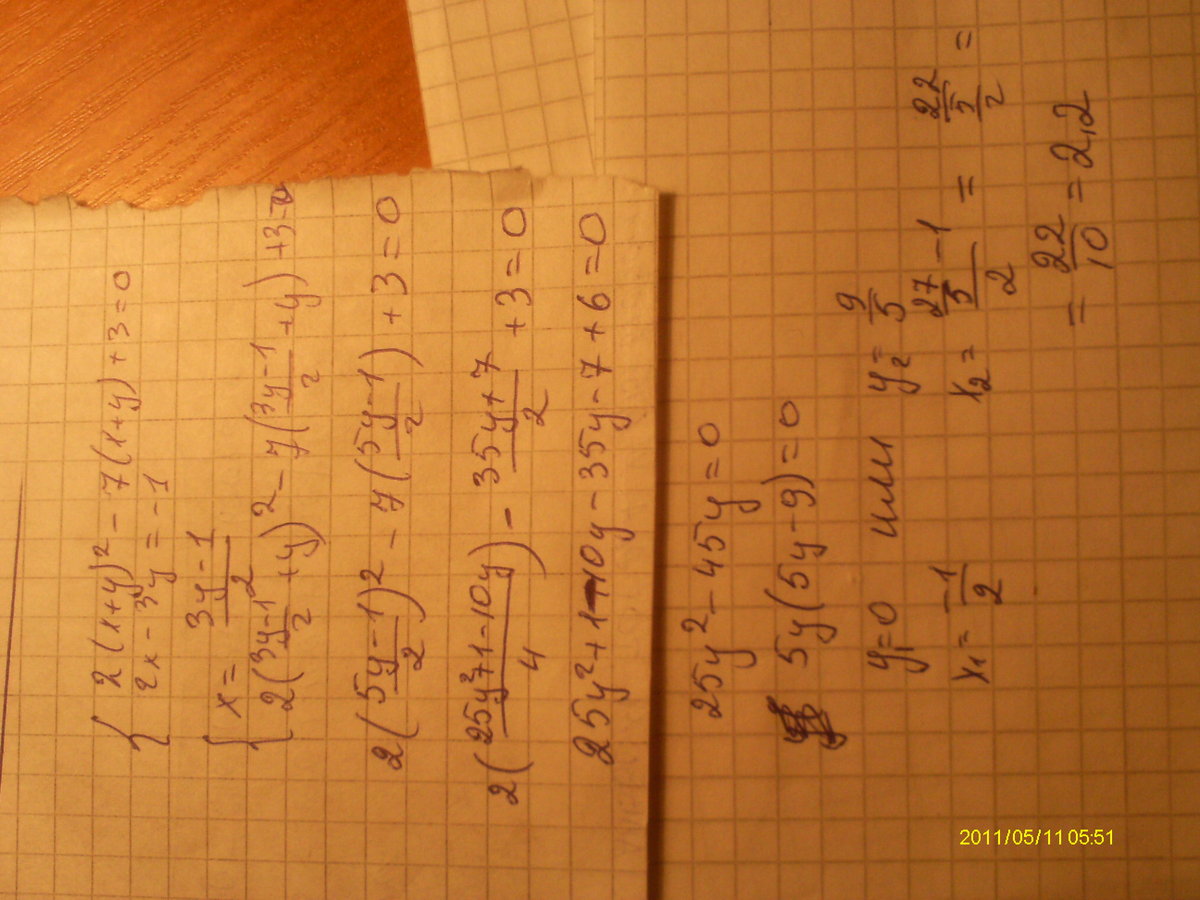 { 2(x+y)² - 7(x+y) + 3 = 0
2x - 3y = -1
{ x = (3y-1)/2
2((3y-1)/2 + y)² - 7((3y-1)/2 + y) + 3 = 0
2((5y-1)/2)² - 7((5y-1)/2) + 3 = 0
2((25y²+1-10y)/4) - (35y+7)/2 + 3 = 0
25y²+1-10y - 35y - 7 + 6 = 0
25y² - 45y = 0
5y(5y-9) = 0
y₁ = 0 или y₂ = 9/5
x₁ = -1/2 x₂ = (27/5 - 1)/2 = (22/5)/2 =
= 22/10 = 2,2
2011/05/11 05:51